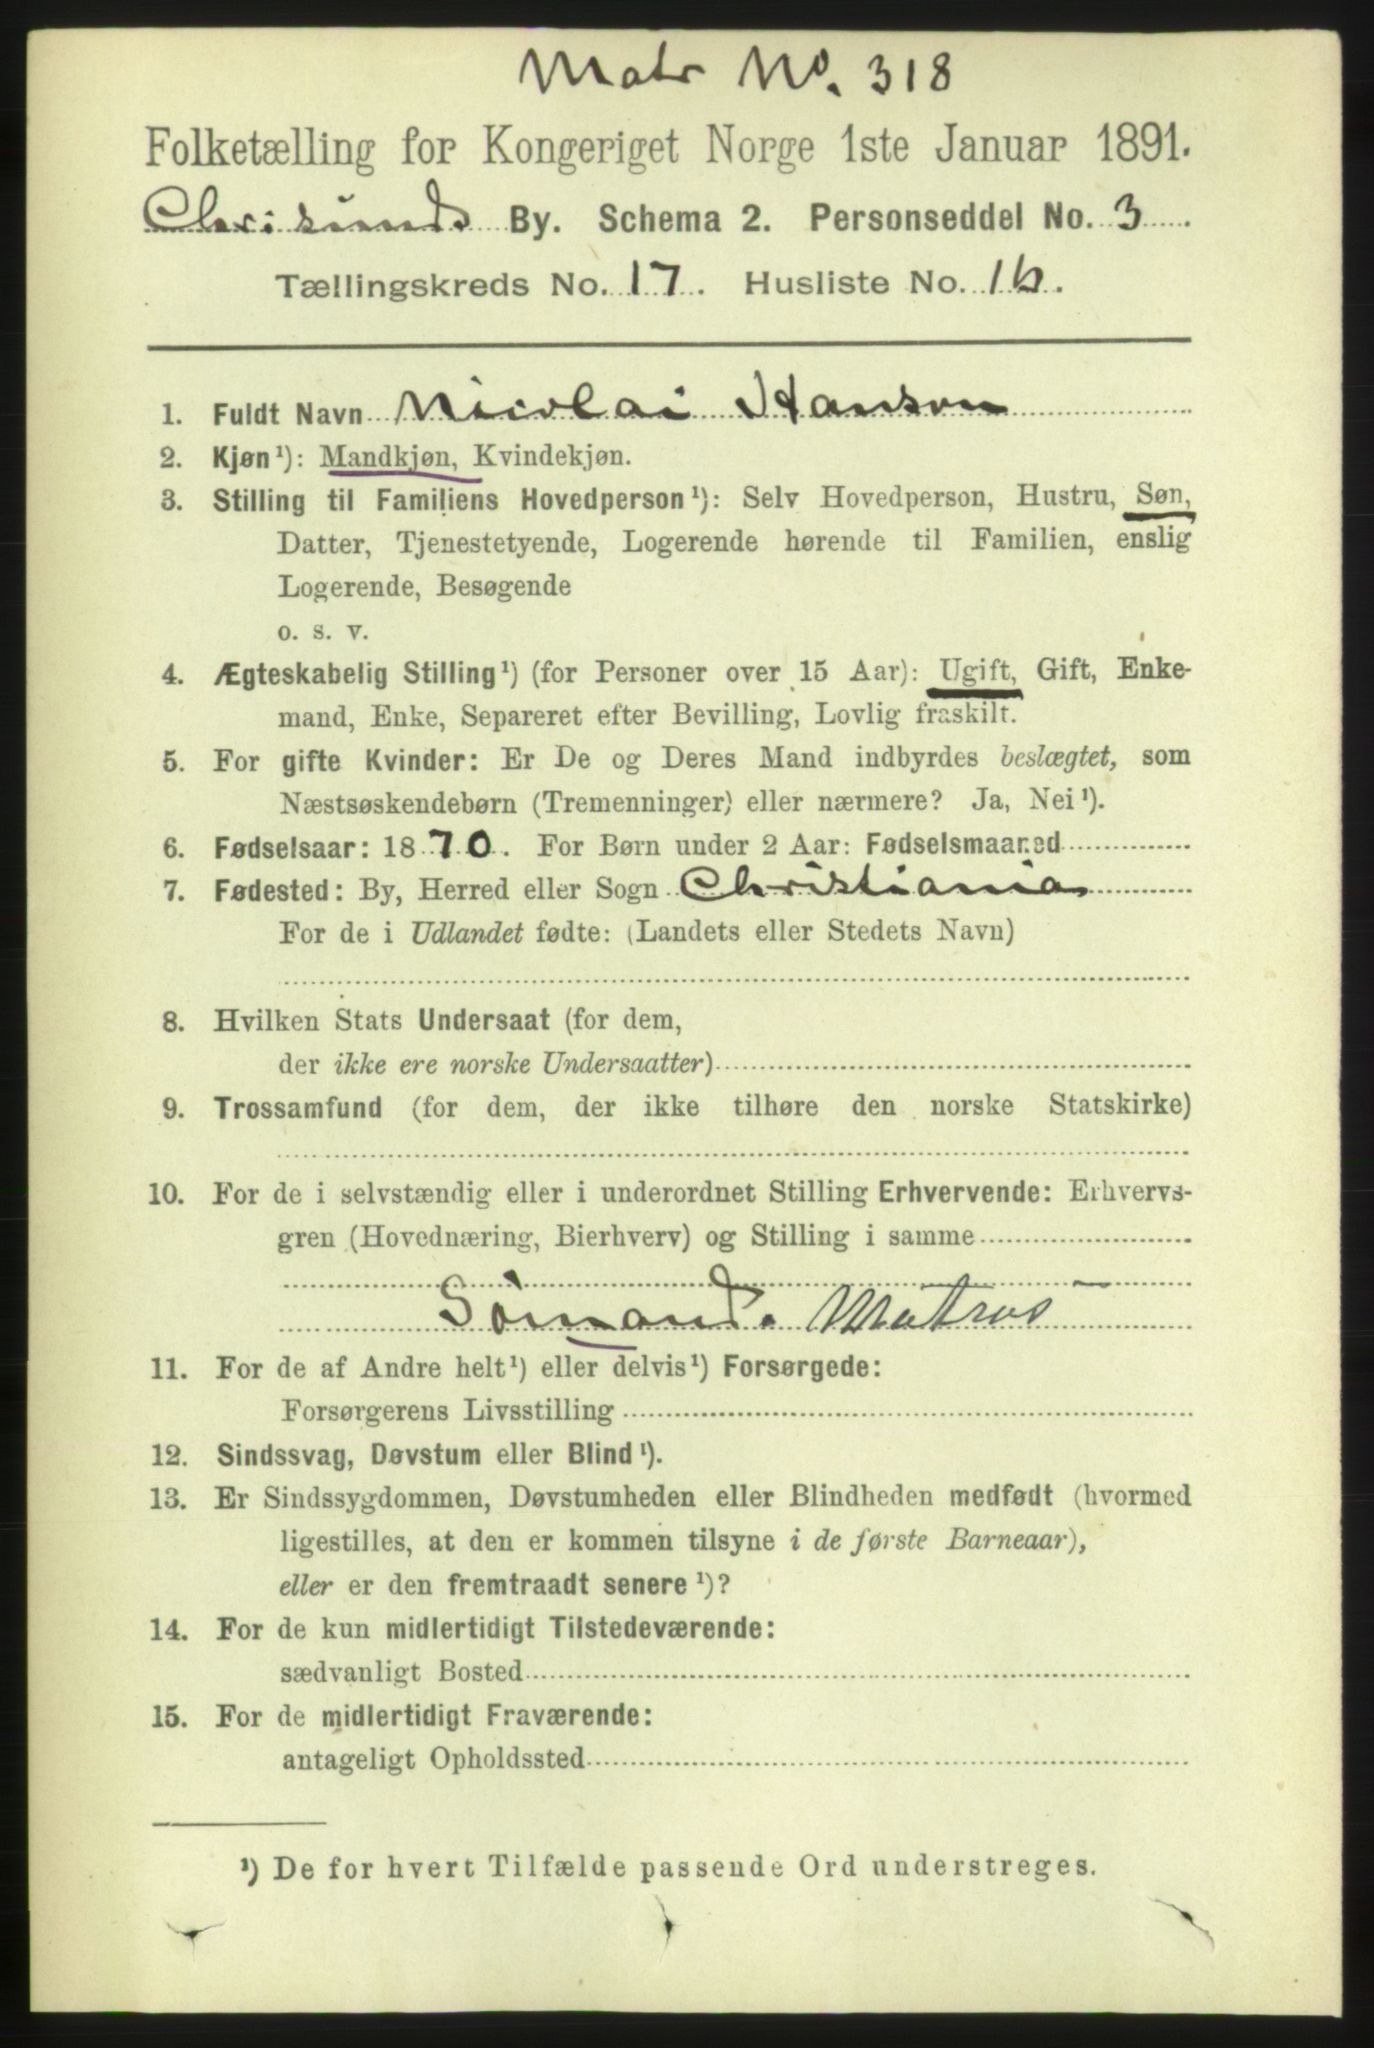 Matr No. 318
Folketælling for Kongeriget Norge 1ste Januar 1891.
Chrisunds By. Schema 2. Personseddel No. 3
Tællingskreds No. 17. Husliste No. 16.
1. Fuldt Navn Nicolai Hanson
2. Kjøn¹): Mandkjøn, Kvindekjøn.
3. Stilling til Familiens Hovedperson¹): Selv Hovedperson, Hustru, Søn,
Datter, Tjenestetyende, Logerende hørende til Familien, enslig
Logerende, Besøgende
o. s. v.
4. Ægteskabelig Stilling¹) (for Personer over 15 Aar): Ugift, Gift, Enke-
mand, Enke, Separeret efter Bevilling, Lovlig fraskilt.
5. For gifte Kvinder: Er De og Deres Mand indbyrdes beslægtet, som
Næstsøskendebørn (Tremenninger) eller nærmere? Ja, Nei¹).
6. Fødselsaar: 1870. For Børn under 2 Aar: Fødselsmaaned
7. Fødested: By, Herred eller Sogn Christiania
For de i Udlandet fødte: (Landets eller Stedets Navn)
8. Hvilken Stats Undersaat (for dem,
der ikke ere norske Undersaatter)
9. Trossamfund (for dem, der ikke tilhøre den norske Statskirke)
10. For de i selvstændig eller i underordnet Stilling Erhvervende: Erhvervs-
gren (Hovednæring, Bierhverv) og Stilling i samme
Sömand. Matros
11. For de af Andre helt¹) eller delvis¹) Forsørgede:
Forsørgerens Livsstilling
12. Sindssvag, Døvstum eller Blind¹).
13. Er Sindssygdommen, Døvstumheden eller Blindheden medfødt (hvormed
ligestilles, at den er kommen tilsyne i de første Barneaar),
eller er den fremtraadt senere¹)?
14. For de kun midlertidigt Tilstedeværende:
sædvanligt Bosted
15. For de midlertidigt Fraværende:
antageligt Opholdssted
¹) De for hvert Tilfælde passende Ord understreges.